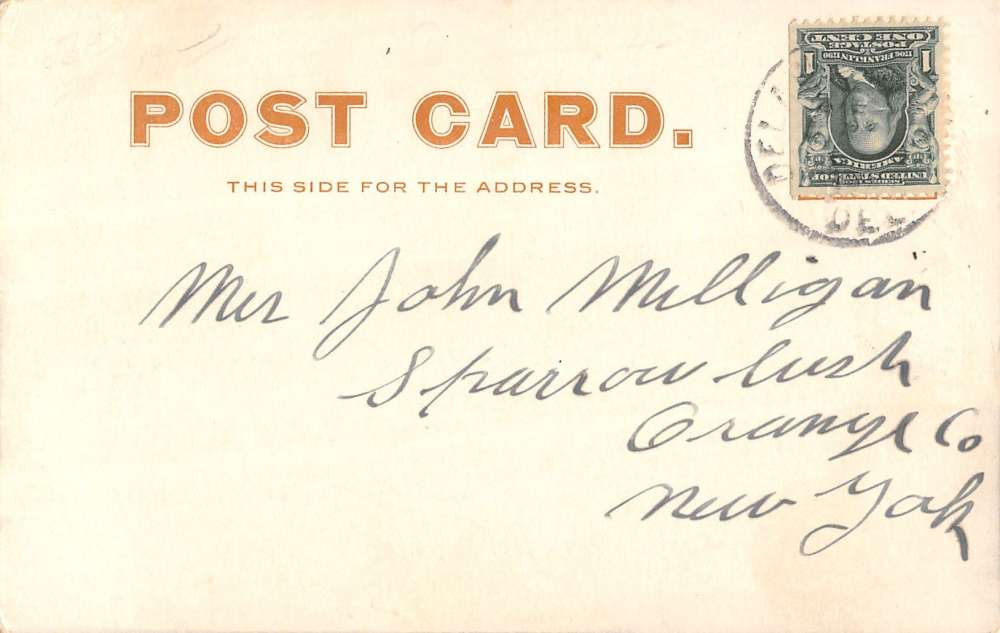 POST CARD.
THIS SIDE FOR THE ADDRESS.
SERIES 1902
UNITED STATES OF
AMERICA
1706 FRANKLIN 1790
POSTAGE
1 ONE CENT 1
DEC
Mrs John Milligan
Sparrow bush
Orange Co
New York